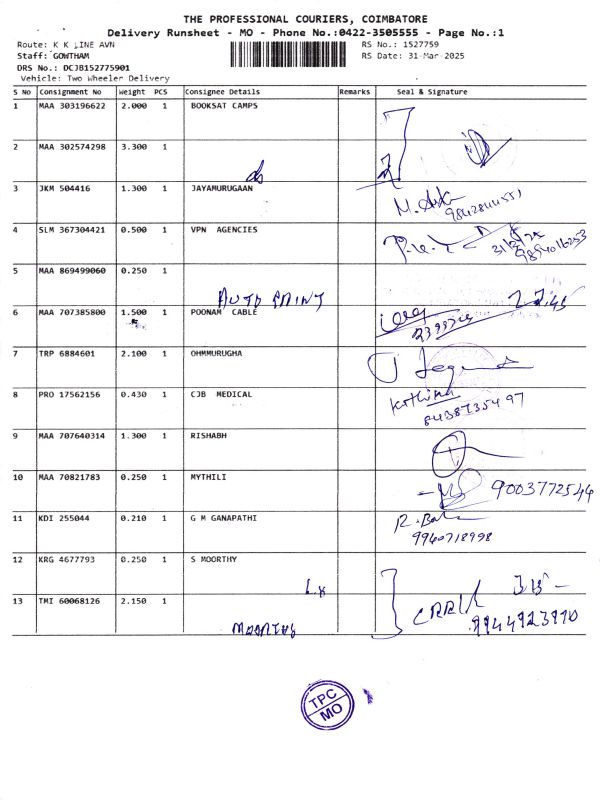 THE PROFESSIONAL COURIERS, COIMBATORE
Delivery Runsheet - MO - Phone No.:0422-3505555 - Page No.:1
Route: K K LINE AVN RS No.: 1527759
Staff: GOWTHAM RS Date: 31-Mar-2025
DRS No.: DCJB152775901
Vehicle: Two Wheeler Delivery
S No Consignment No Weight PCS Consignee Details Remarks Seal & Signature
1 MAA 303196622 2.000 1 BOOKSAT CAMPS
2 MAA 302574298 3.300 1
3 JKM 504416 1.300 1 JAYAMURUGAAN
9842844551
4 SLM 367304421 0.500 1 VPN AGENCIES
31/3/25
9894016253
5 MAA 869499060 0.250 1
AUTO PRINT
6 MAA 707385800 1.500 1 POONAM CABLE
7 TRP 6884601 2.100 1 OHMMURUGHA
8 PRO 17562156 0.430 1 CJB MEDICAL
Krthika
8438735497
9 MAA 707640314 1.300 1 RISHABH
10 MAA 70821783 0.250 1 MYTHILI
9003772544
11 KDI 255044 0.210 1 G M GANAPATHI
9940718998
12 KRG 4677793 0.250 1 S MOORTHY
13 TMI 60068126 2.150 1
9944923970
TPC
MO